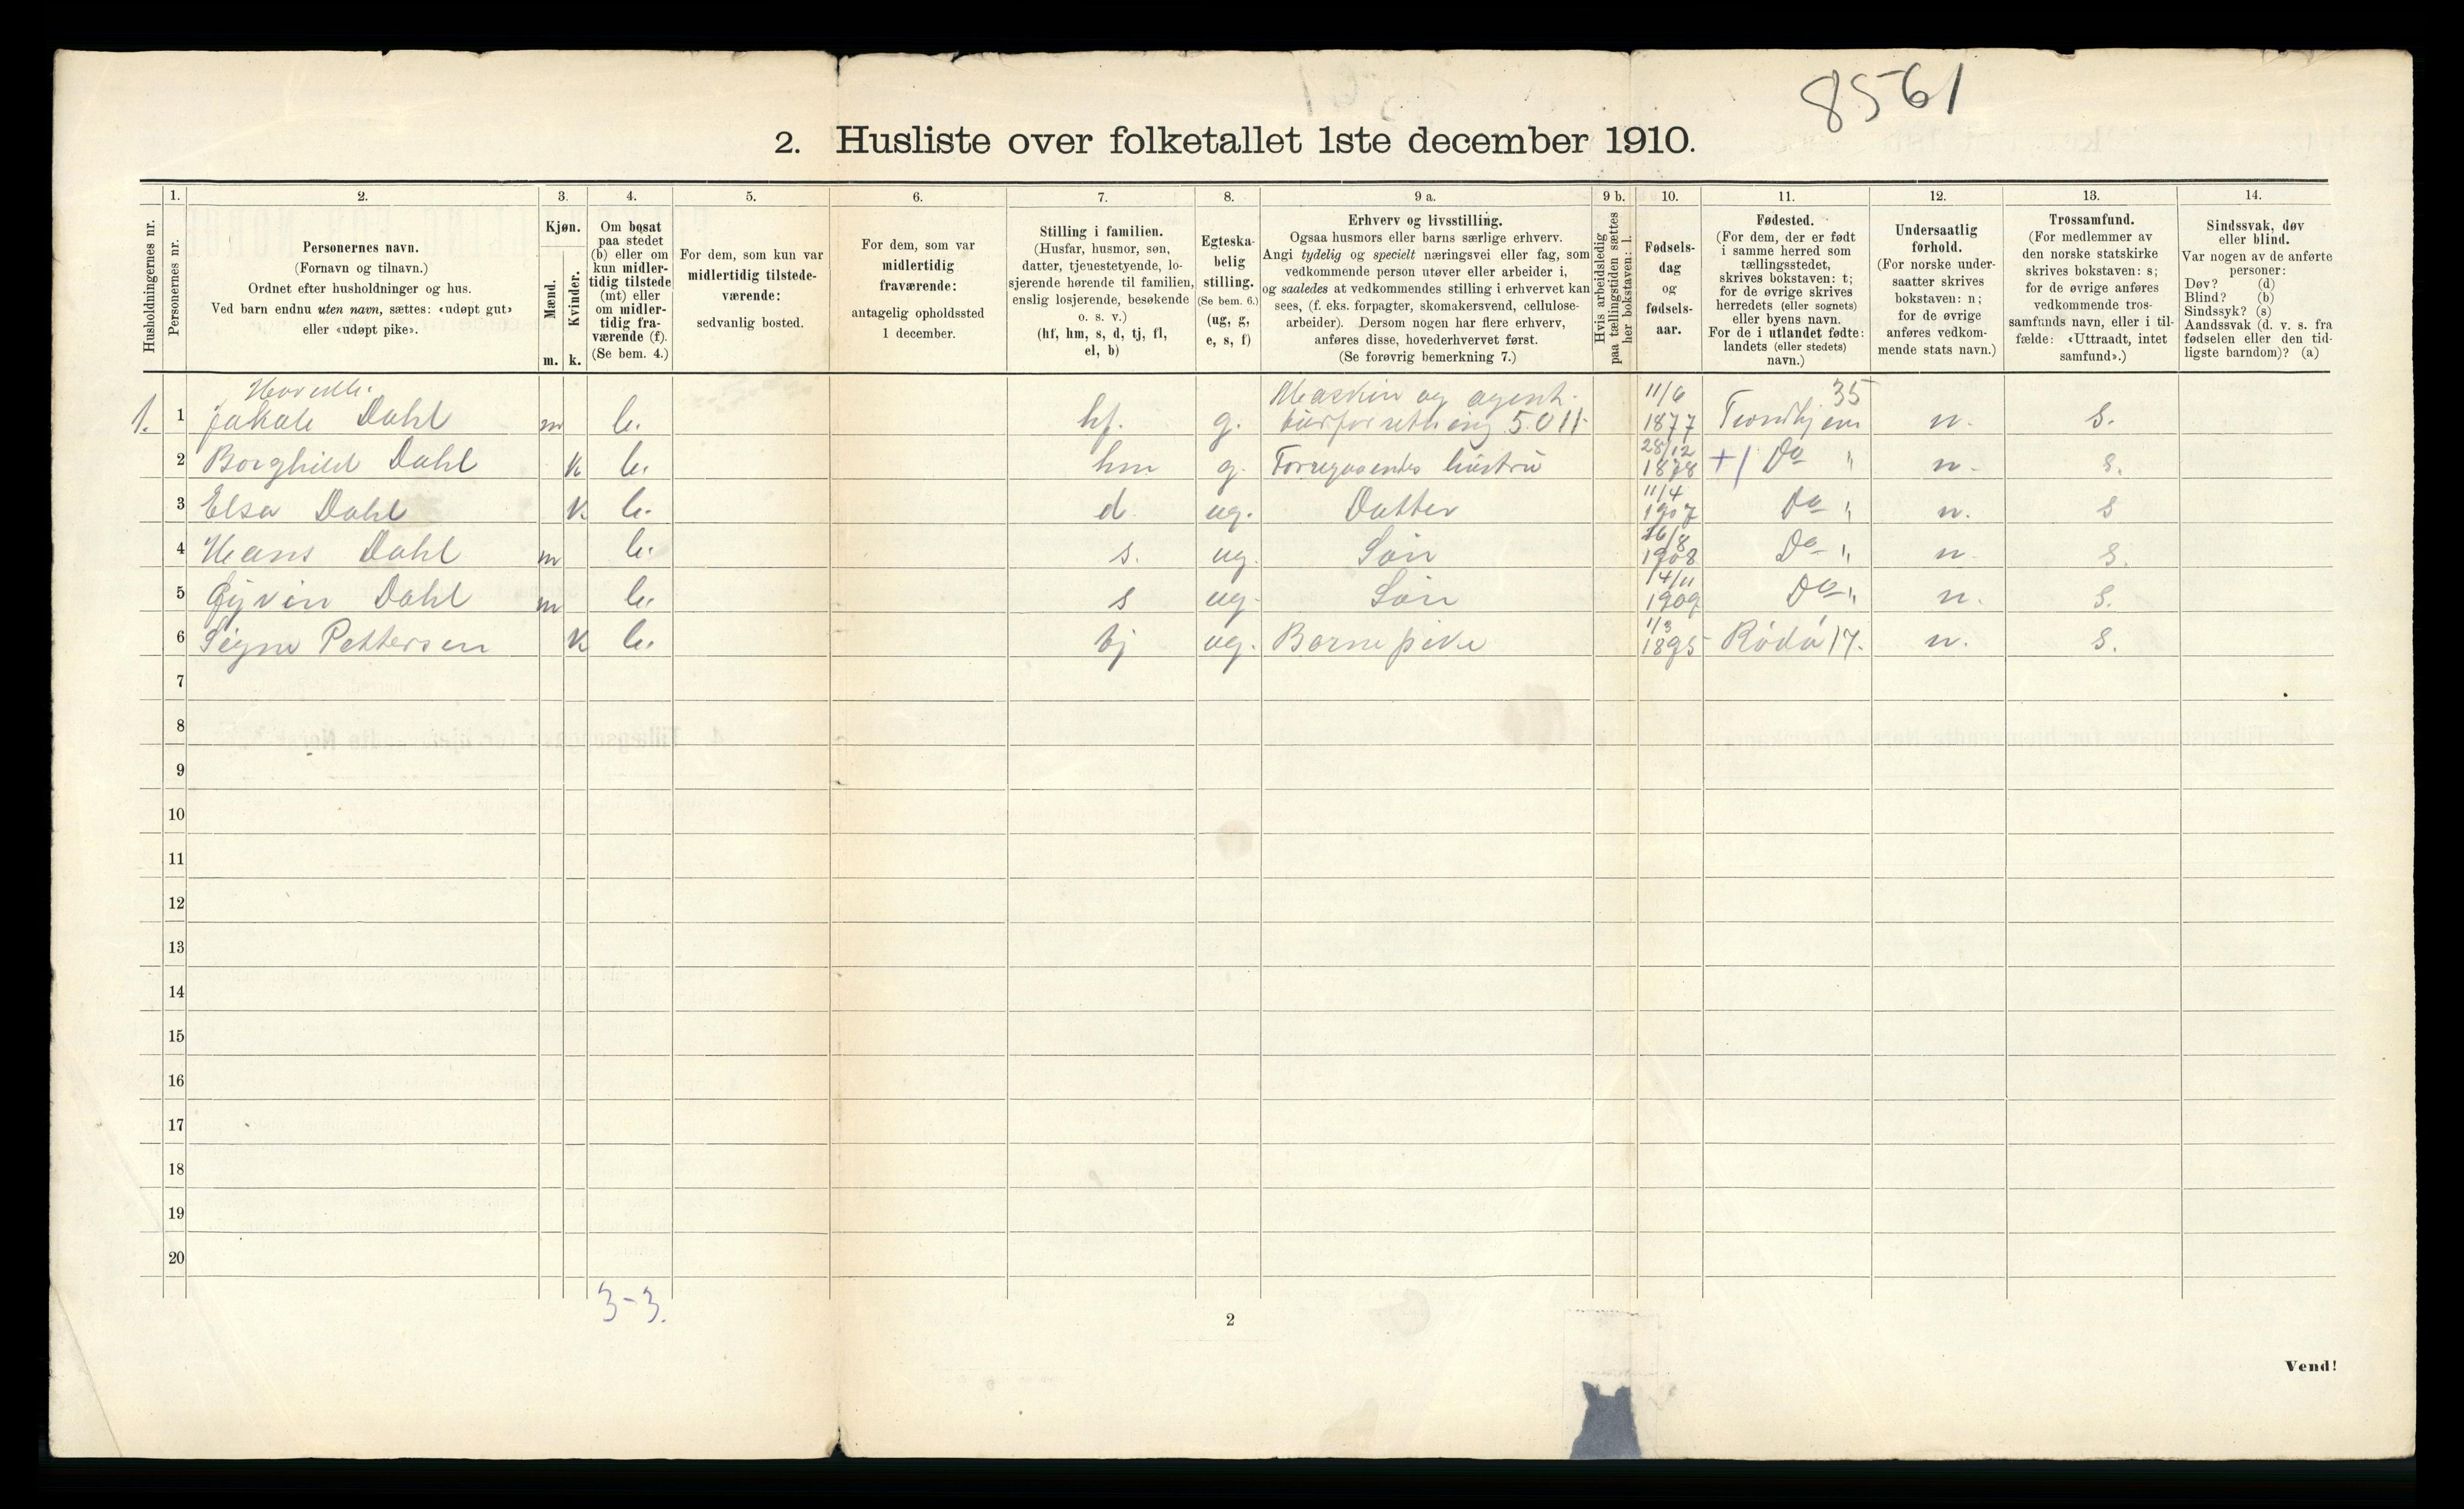 8561
2. Husliste over folketallet 1ste december 1910.
1. 2. 3. 4. 5. 6. 7. 8. 9 a. 9 b. 10. 11. 12. 13. 14.
Husholdningernes nr.
Personernes nr.
Personernes navn.
(Fornavn og tilnavn.)
Ordnet efter husholdninger og hus.
Ved barn endnu uten navn, sættes: «udøpt gut»
eller «udøpt pike».
Kjøn.
Mænd.
Kvinder.
m. k.
Om bosat
paa stedet
(b) eller om
kun midler-
tidig tilstede
(mt) eller
om midler-
tidig fra-
værende (f).
(Se bem. 4.)
For dem, som kun var
midlertidig tilstede-
værende:
sedvanlig bosted.
For dem, som var
midlertidig
fraværende:
antagelig opholdssted
1 december.
Stilling i familien.
(Husfar, husmor, søn,
datter, tjenestetyende, lo-
sjerende hørende til familien,
enslig losjerende, besøkende
o. s. v.)
(hf, hm, s, d, tj, fl,
el, b)
Egteska-
belig
stilling.
(Se bem. 6.)
(ug, g,
e, s, f)
Erhverv og livsstilling.
Ogsaa husmors eller barns særlige erhverv.
Angi tydelig og specielt næringsvei eller fag, som
vedkommende person utøver eller arbeider i,
og saaledes at vedkommendes stilling i erhvervet kan
sees, (f. eks. forpagter, skomakersvend, cellulose-
arbeider). Dersom nogen har flere erhverv,
anføres disse, hovederhvervet først.
(Se forøvrig bemerkning 7.)
Hvis arbeidsledig
paa tællingstiden sættes
her bokstaven: l.
Fødsels-
dag
og
fødsels-
aar.
Fødested.
(For dem, der er født
i samme herred som
tællingsstedet,
skrives bokstaven: t;
for de øvrige skrives
herredets (eller sognets)
eller byens navn.
For de i utlandet fødte:
landets (eller stedets)
navn.)
Undersaatlig
forhold.
(For norske under-
saatter skrives
bokstaven: n;
for de øvrige
anføres vedkom-
mende stats navn.)
Trossamfund.
(For medlemmer av
den norske statskirke
skrives bokstaven: s;
for de øvrige anføres
vedkommende tros-
samfunds navn, eller i til-
fælde: «Uttraadt, intet
samfund».)
Sindssvak, døv
eller blind.
Var nogen av de anførte
personer:
Døv? (d)
Blind? (b)
Sindssyk? (s)
Aandssvak (d. v. s. fra
fødselen eller den tid-
ligste barndom)? (a)
Maskin og agent- 11/6 35
1. 1 Dahl m b. hf. g. türforretning 5011 1877 Trondhjem n. s.
28/12
2 Borghild Dahl k b. hm g. Foregaaendes hüstrü 1878 +1 Do " n. s.
11/4
3 Elsa Dahl k b. d ug. Datter 1907 Do " n. s
16/8
4 Hans Dahl m b. s. ug. Sön 1908 Do " n. s.
14/11
5 Öyvin Dahl m b. s ug. Sön 1909 Do " n. s.
1/3
6 Signe Pettersen k b. tj ug. Barnepike 1895 Rödö 17. n. s.
7
8
9
10
11
12
13
14
15
16
17
18
19
20
3-3.
2
Vend!